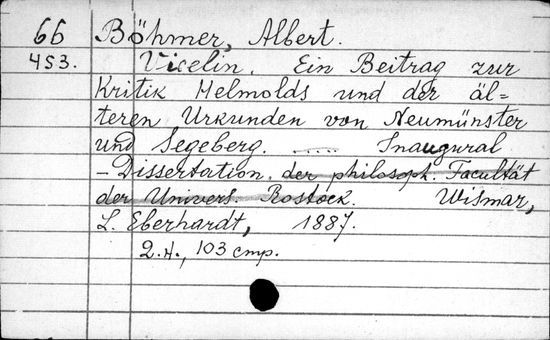 66 Böhmer, Albert.
453. Vicelin. Ein Beitrag zur
Kritik Helmolds und der äl=
teren Urkunden von Neumünster
und Segeberg. ..... Inaugural
-Dissertation der philosoph. Facultät
der Univers. Rostock. Wismar,
L. Eberhardt, 1887.
2.н., 103 стр.